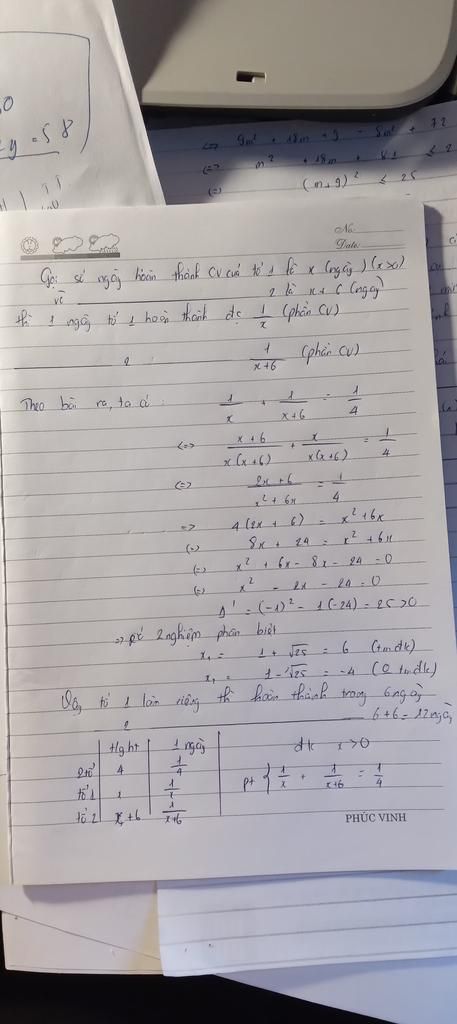 y = 58
<=> 9m² + 18m + 9 - 8m² + 72
<=> m² + 18m + 81 ≤ 2
(=) (m+9)² ≤ 25
No:
Date:
Gọi số ngày hoàn thành CV của tổ 1 là x (ngày) (x>0)
2 là x+6 (ngày)
thì 1 ngày tổ 1 hoàn thành đc 1/x (phần CV)
2 1/(x+6) (phần CV)
Theo bài ra, ta có: 1/x + 1/(x+6) = 1/4
<=> (x+6)/(x(x+6)) + x/(x(x+6)) = 1/4
<=> (2x+6)/(x²+6x) = 1/4
=> 4(2x+6) = x²+6x
(=) 8x + 24 = x² + 6x
(=) x² + 6x - 8x - 24 = 0
(=) x² - 2x - 24 = 0
Δ' = (-1)² - 1(-24) = 25 >0
=> pt 2 nghiệm phân biệt
x₁ = 1 + √25 = 6 (tmđk)
x₁ = 1 - √25 = -4 (0 tmđk)
Vậy tổ 1 làm riêng thì hoàn thành trong 6 ngày
2 6+6=12 ngày
tght 1 ngày
2 tổ 4 1/4
tổ 1 x 1/x
tổ 2 x+6 1/(x+6)
đk x>0
pt { 1/x + 1/(x+6) = 1/4
PHÚC VINH